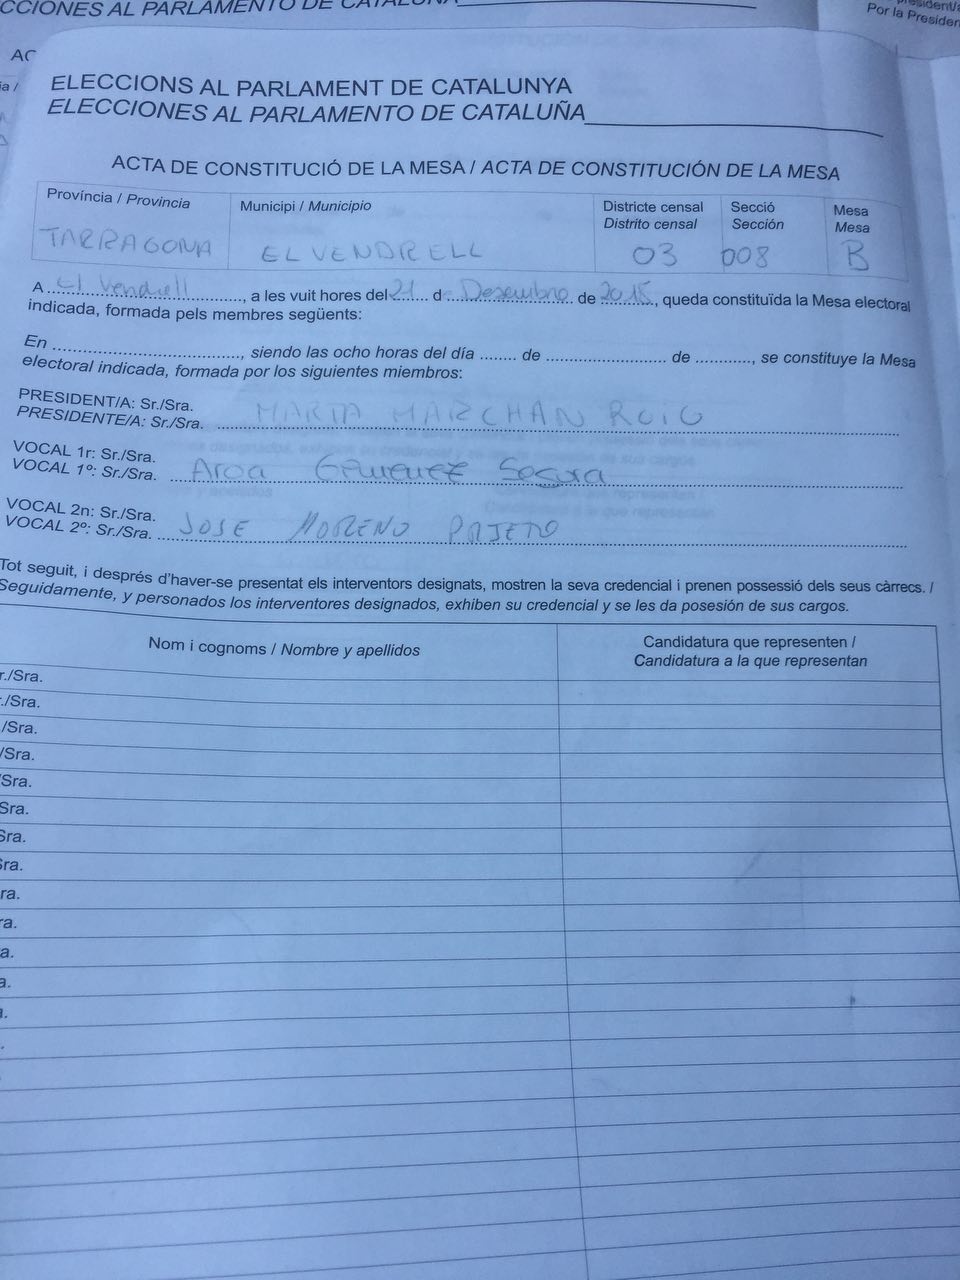 CCIONES AL PARLAMENTO DE CATALUÑA
Por la Presiden
AC
ia /
ELECCIONS AL PARLAMENT DE CATALUNYA
ELECCIONES AL PARLAMENTO DE CATALUÑA
ACTA DE CONSTITUCIÓ DE LA MESA / ACTA DE CONSTITUCIÓN DE LA MESA
Província / Provincia Municipi / Municipio Districte censal Secció Mesa
Distrito censal Sección Mesa
TARRAGONA EL VENDRELL 03 008 B
A El Vendrell, a les vuit hores del 21 d Desembre de 2015, queda constituïda la Mesa electoral
indicada, formada pels membres següents:
En ................, siendo las ocho horas del día ........ de ................ de ..........., se constituye la Mesa
electoral indicada, formada por los siguientes miembros:
PRESIDENT/A: Sr./Sra.
PRESIDENTE/A: Sr./Sra. MARTA MARCHAN ROIG
VOCAL 1r: Sr./Sra.
VOCAL 1º: Sr./Sra. Aroa Gimenez Segura
VOCAL 2n: Sr./Sra.
VOCAL 2º: Sr./Sra. JOSE MORENO PRIETO
Tot seguit, i després d'haver-se presentat els interventors designats, mostren la seva credencial i prenen possessió dels seus càrrecs. /
Seguidamente, y personados los interventores designados, exhiben su credencial y se les da posesión de sus cargos.
Nom i cognoms / Nombre y apellidos Candidatura que representen /
Candidatura a la que representan
r./Sra.
r./Sra.
/Sra.
/Sra.
/Sra.
Sra.
Sra.
Sra.
ra.
ra.
a.
a.
a.